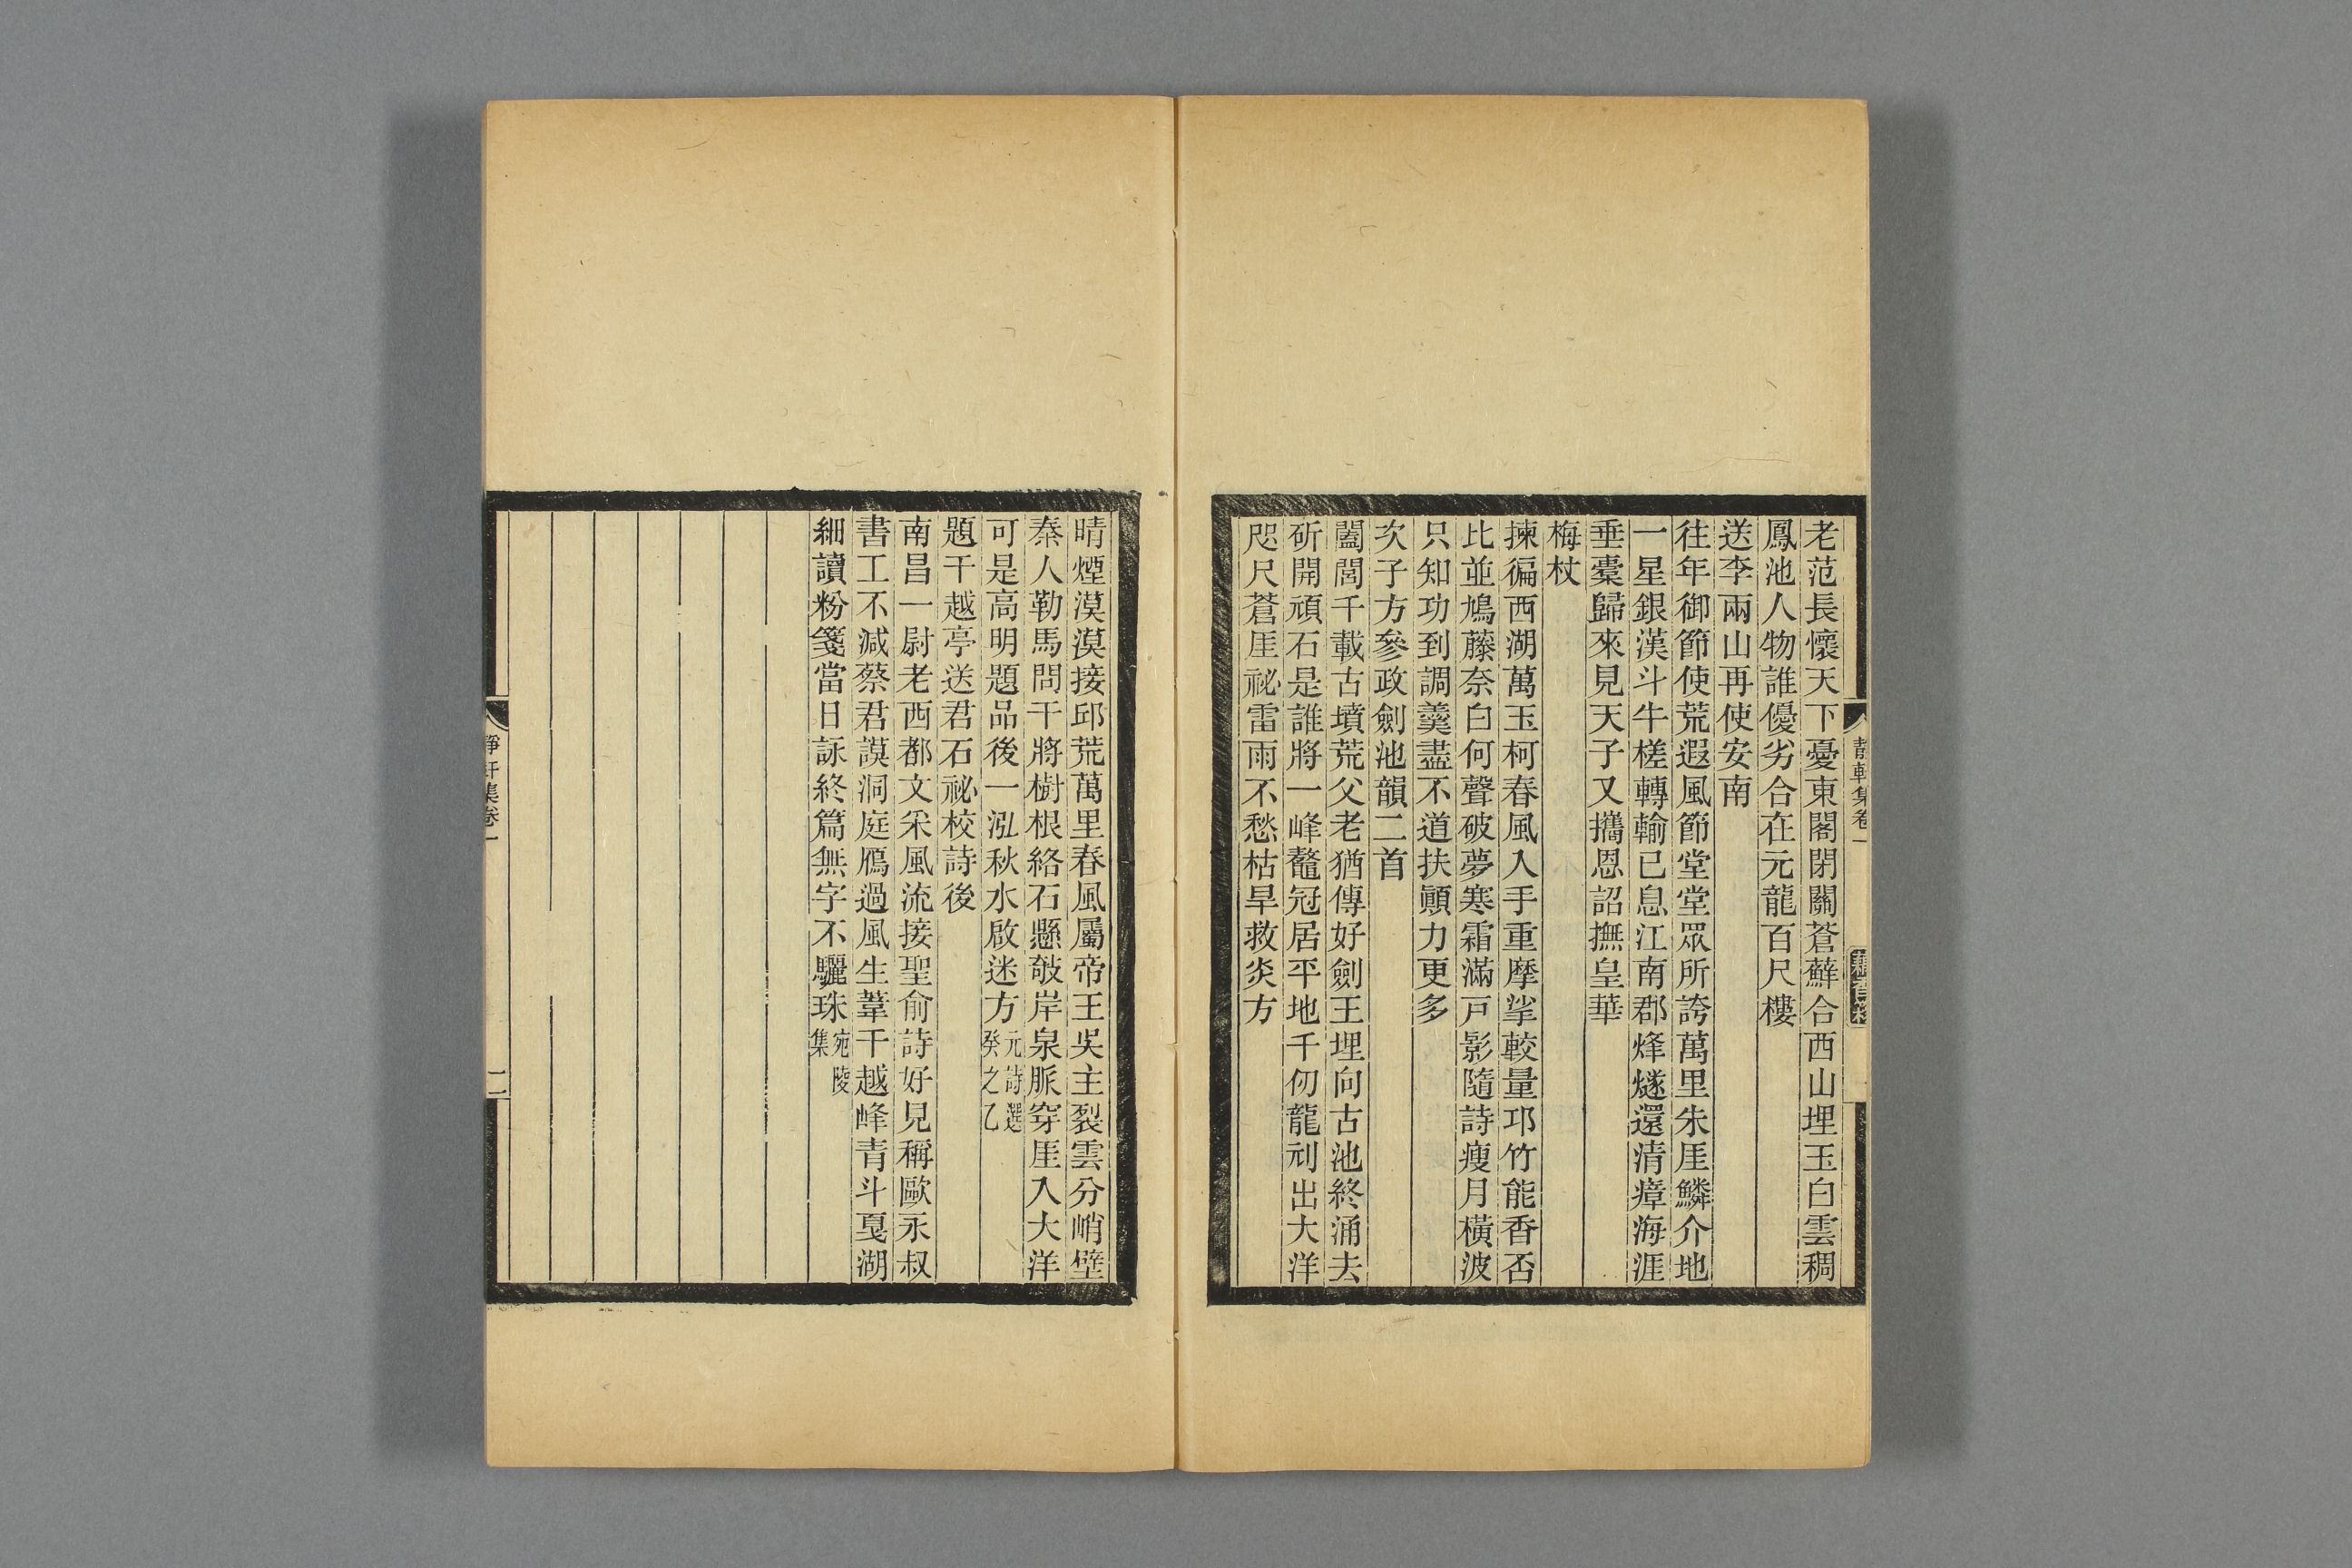 老范長懷天下憂東閣閉關蒼蘚合西山埋玉白雲稠
鳳池人物誰優劣合在元龍百尺樓
送李兩山再使安南
往年御節使荒遐風節堂堂眾所誇萬里朱厓鱗介地
一星銀漢斗牛槎轉輸已息江南郡烽燧還清瘴海涯
垂橐歸來見天子又攜恩詔撫皇華
梅杖
揀徧西湖萬玉柯春風入手重摩挲較量邛竹能香否
比並鳩藤奈白何聲破夢寒霜滿戸影隨詩瘦月橫波
只知功到調羹盡不道扶顚力更多
次子方參政劍池韻二首
闔閭千載古墳荒父老猶傳好劍王埋向古池終涌去
斫開頑石是誰將一峰鼇冠居平地千仞龍刓出大洋
咫尺蒼厓祕雷雨不愁枯旱救炎方
晴煙漠漠接邱荒萬里春風屬帝王吳主裂雲分峭壁
秦人勒馬問干將樹根絡石懸㩻岸泉脈穿厓入大洋
可是高明題品後一泓秋水啟迷方元詩選
癸之乙
題干越亭送君石祕校詩後
南昌一尉老西都文采風流接聖俞詩好見稱歐永叔
書工不減蔡君謨洞庭鴈過風生葦干越峰青斗戛湖
細讀粉箋當日詠終篇無字不驪珠宛陵
集
靜軒集卷一
二